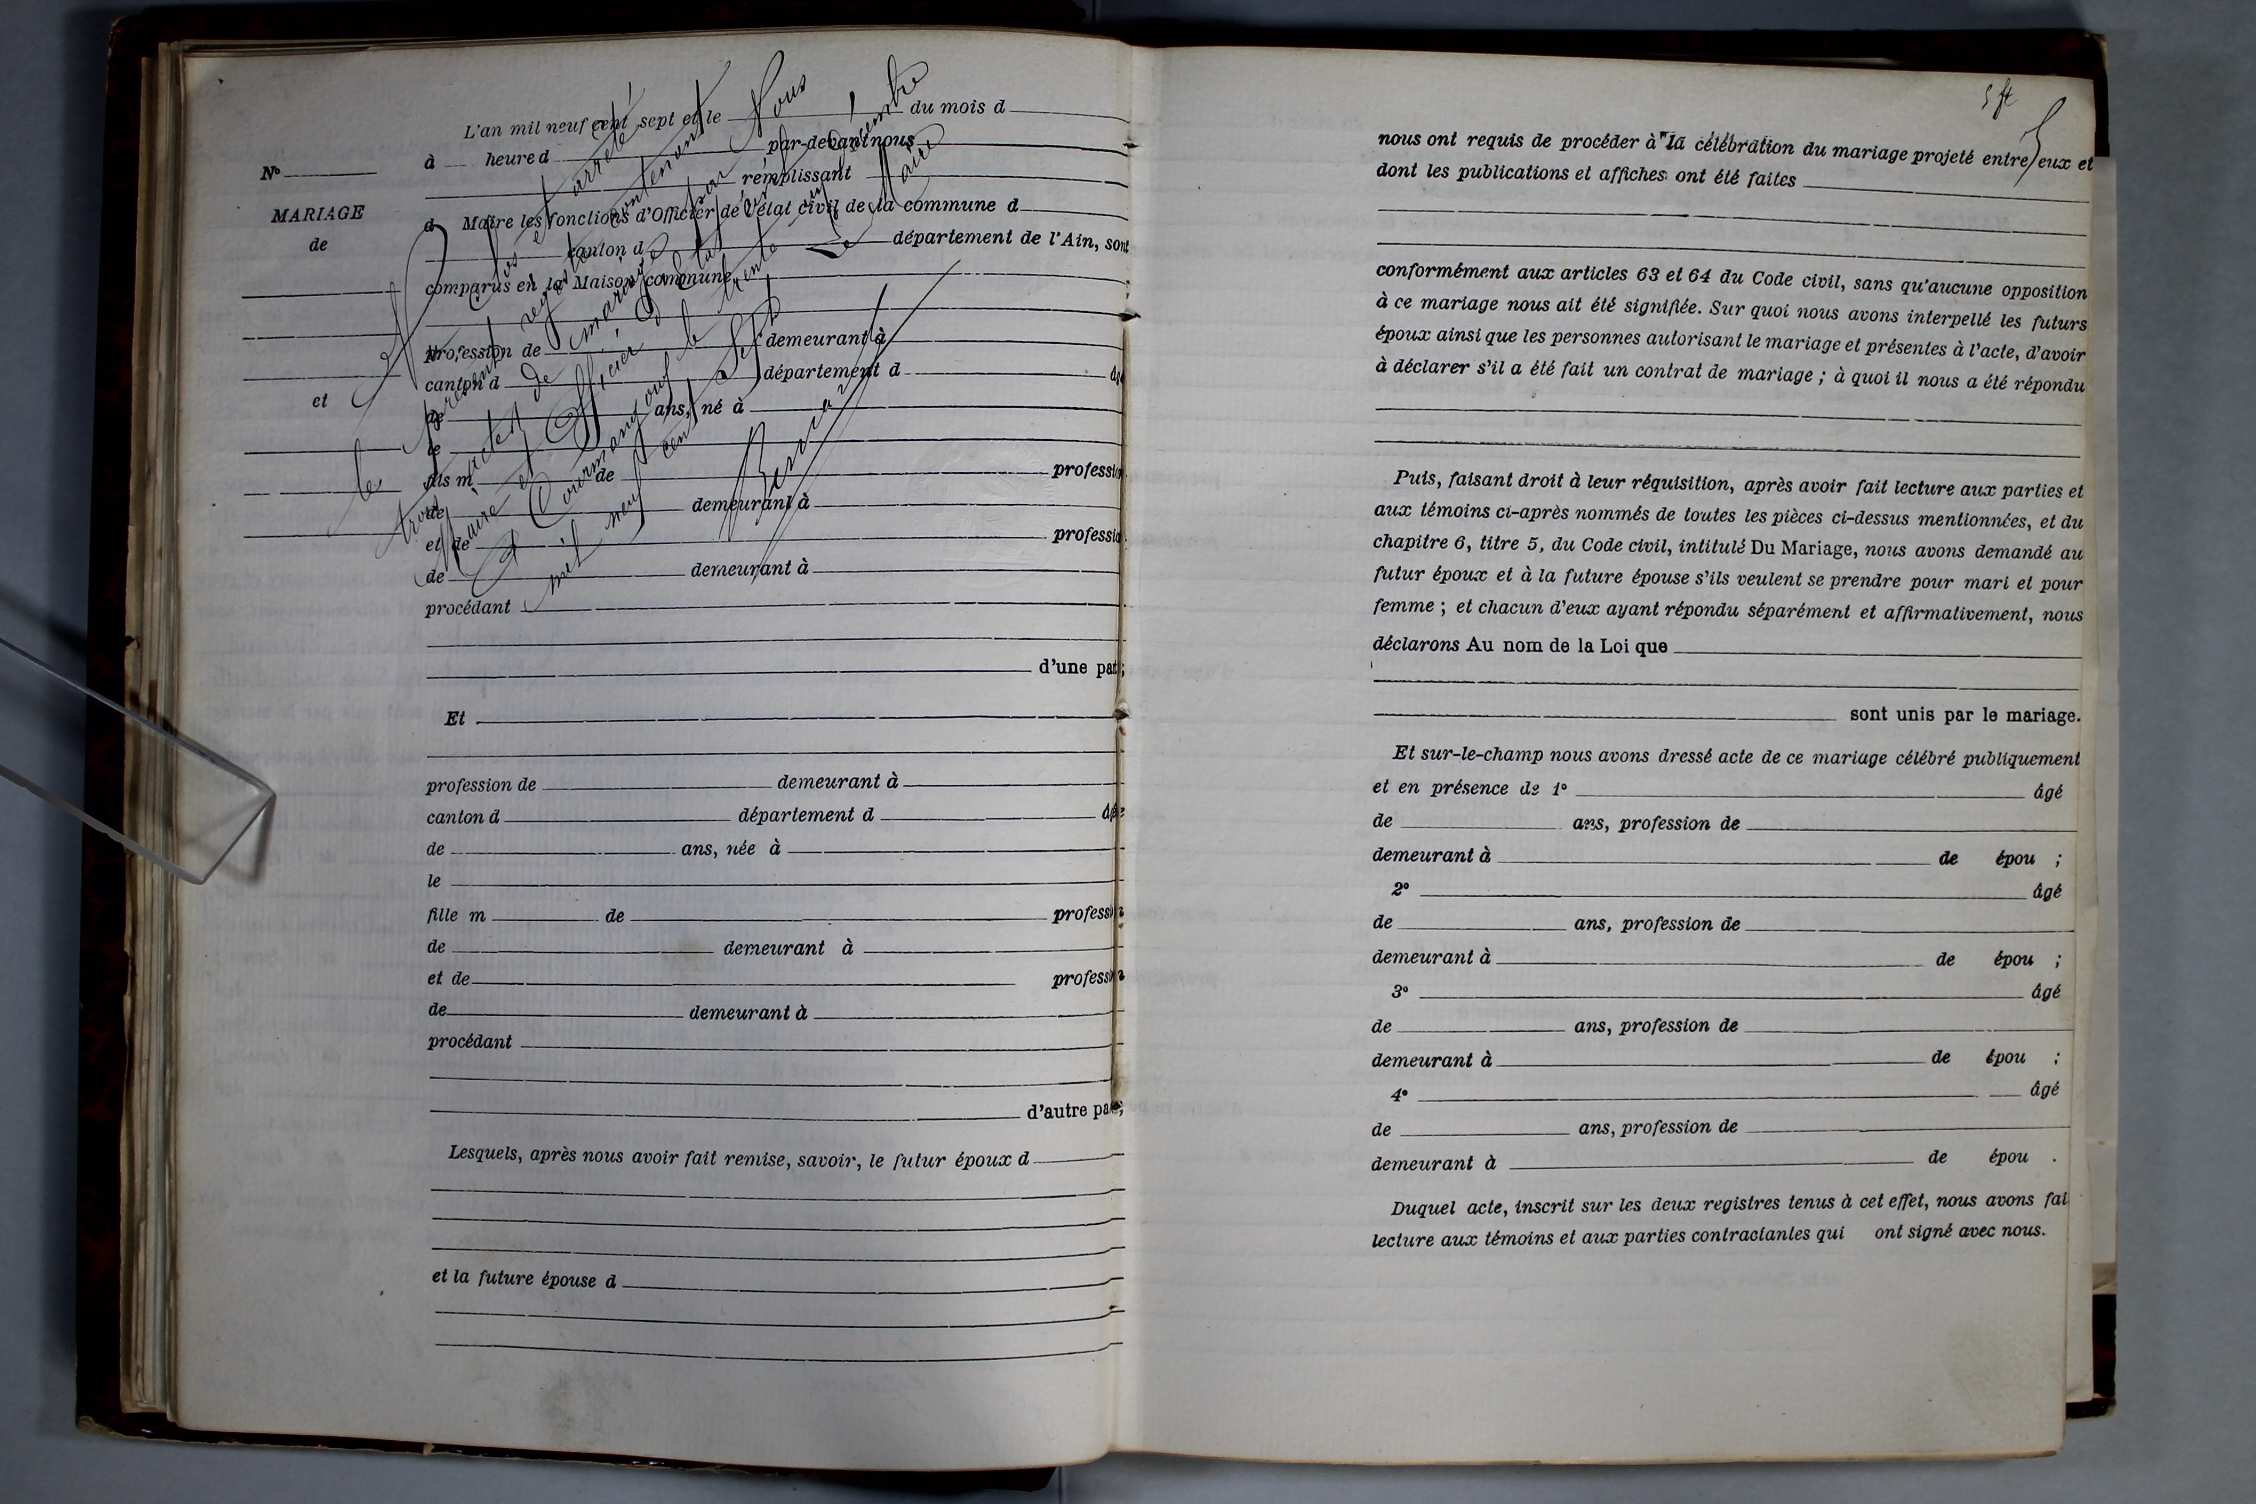 L'an mil neuf cent sept et le du mois d
à heure d par-devant nous
remplissant
d Maire les fonctions d'Officier de l'état civil de la commune d
canton d département de l'Ain, sont
comparus en la Maison commune
profession de demeurant à
canton d département d âgé
de ans, né à
le
fils m de profession
de demeurant à
et de profession
de demeurant à
procédant
d'une part;
Et
profession de demeurant à
canton d département d âgée
de ans, née à
le
fille m de profession
de demeurant à
et de profession
de demeurant à
procédant
d'autre part;
Lesquels, après nous avoir fait remise, savoir, le futur époux d
et la future épouse d
No
MARIAGE
de
et
Clos et arrêté Nous
le présent registre contenant
trois actes de mariage par
Maire et Officier de l'état civil
Courmangoux le trente un Décembre
mil neuf cent sept
Le Maire
5 ft
nous ont requis de procéder à la célébration du mariage projeté entre eux et
dont les publications et affiches ont été faites
conformément aux articles 63 et 64 du Code civil, sans qu'aucune opposition
à ce mariage nous ait été signifiée. Sur quoi nous avons interpellé les futurs
époux ainsi que les personnes autorisant le mariage et présentes à l'acte, d'avoir
à déclarer s'il a été fait un contrat de mariage ; à quoi il nous a été répondu
Puis, faisant droit à leur réquisition, après avoir fait lecture aux parties et
aux témoins ci-après nommés de toutes les pièces ci-dessus mentionnées, et du
chapitre 6, titre 5, du Code civil, intitulé Du Mariage, nous avons demandé au
futur époux et à la future épouse s'ils veulent se prendre pour mari et pour
femme ; et chacun d'eux ayant répondu séparément et affirmativement, nous
déclarons Au nom de la Loi que
sont unis par le mariage.
Et sur-le-champ nous avons dressé acte de ce mariage célébré publiquement
et en présence de 1° âgé
de ans, profession de
demeurant à de épou ;
2° âgé
de ans, profession de
demeurant à de épou ;
3° âgé
de ans, profession de
demeurant à de épou ;
4° âgé
de ans, profession de
demeurant à de épou .
Duquel acte, inscrit sur les deux registres tenus à cet effet, nous avons fai
lecture aux témoins et aux parties contractantes qui ont signé avec nous.